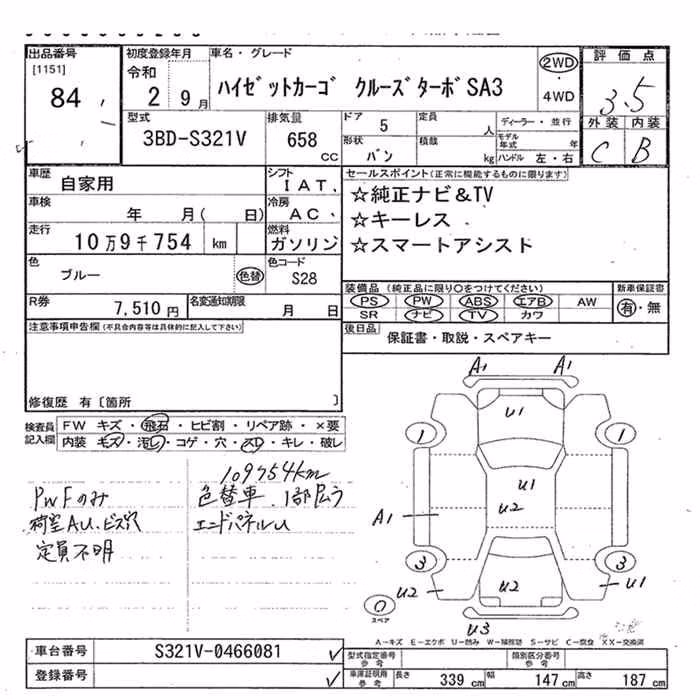 出品番号
[1151]
84
初度登録年月
令和
2 9月
車名・グレード
ハイゼットカーゴ クルーズターボSA3
2WD
・
4WD
評価点
3.5
外装 内装
C B
型式
3BD-S321V
排気量
658
cc
ドア 5
形状 バン
定員 人
積載 kg
ディーラー・並行
モデル年式 年
ハンドル 左・右
車歴
自家用
シフト
IAT.
車検
年 月( 日)
冷房
AC.
走行
10万9千754 km
燃料
ガソリン
色
ブルー
色替
色コード
S28
R券
7,510円
名変通知期限
月 日
セールスポイント(正常に機能するものに限ります)
☆純正ナビ&TV
☆キーレス
☆スマートアシスト
装備品 (純正品に限り○をつけてください)
新車保証書
PS PW ABS エアB AW
SR ナビ TV カワ
有・無
後日品
保証書・取説・スペアキー
注意事項申告欄(不具合内容等は具体的に記入して下さい)
修復歴 有〔箇所 〕
検査員記入欄
FW キズ・飛石・ヒビ割・リペア跡・×要
内装 キズ・汚レ・コゲ・穴・スレ・キレ・破レ
109754km
PWFのみ
色替車、1部広う
荷室AU、ビス穴
エンドパネルU
定員不明
A1 A1
U1
1 1
U1
U2
A1
3 3
U2 U2 U1
0
スペア
U3
A-キズ E-エクボ U-凹み W-補修跡 S-サビ C-腐食 XX-交換済
車台番号
S321V-0466081
登録番号
型式指定番号
参考
類別区分番号
参考
車庫証明用
参考
長さ 339cm 幅 147cm 高さ 187cm